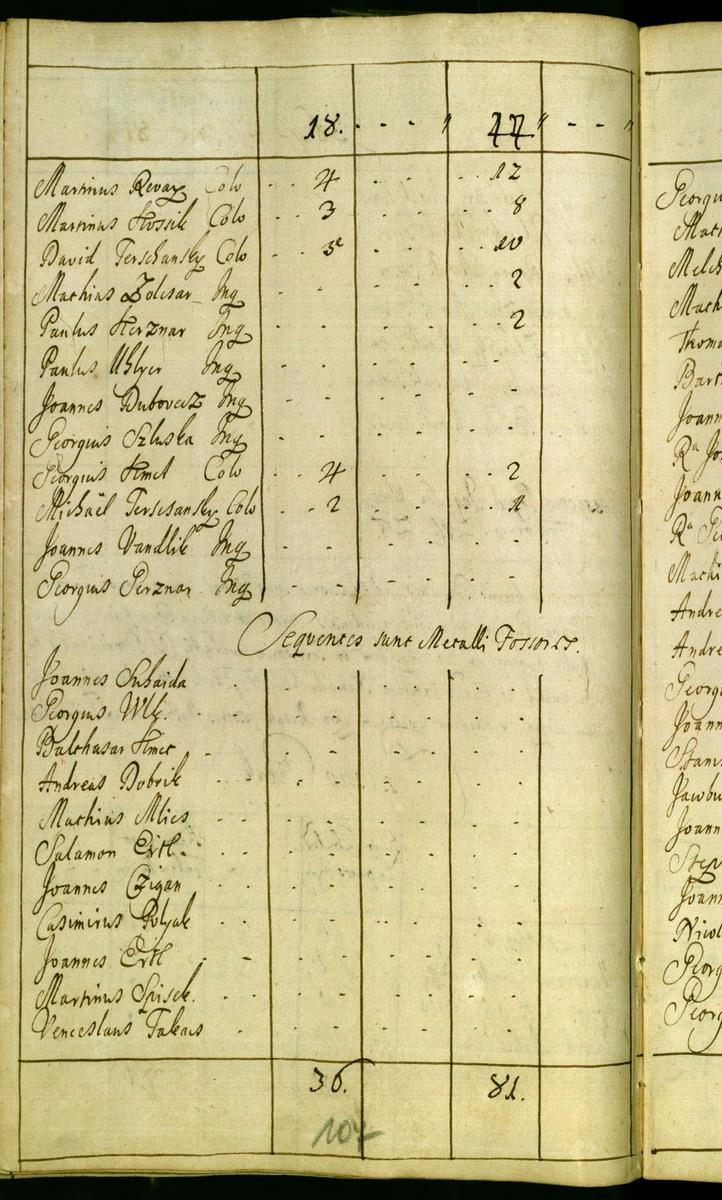 18. - - - " 44 " - - "
Martinus Revay Colo - - 4 - - - - 12
Martinus Hossik Colo - - 3 - - - - 8
David Terschansky Colo - - 3 - - - - 10
Mathias Zolcsar Inq - - - - - 2
Paulus Herznar Inq - - - - - 2
Paulus Uhlyer Inq - - - - - -
Joannes Dubovecz Inq - - - - - -
Georgius Szluska Inq - - - - - -
Georgius Hmet Colo - - 4 - - - - 2
Michaël Terscsansky Colo - - 2 - - - - 1
Joannes Vandlik Inq - - - - - -
Georgius Perznar Inq - - - - - -
Sequentes sunt Metalli Fossores.
Joannes Suhaida
Georgius Wlk.
Balthasar Hmet
Andreas Dobrik
Mathias Mlics
Salamon Ertl.
Joannes Czigan
Casimirus Polyak
Joannes Ertl
Martinus Spisek.
Venceslaus Takacs
36. 81.
107
Georgiu
Math
Melch
Math
Thoma
Bart
Joann
Ra Jo
Joann
Ra Ge
Mathi
Andre
Andre
Georgi
Joann
Stani
Jacobu
Joann
Step
Joann
Nicol
Georg
Georg